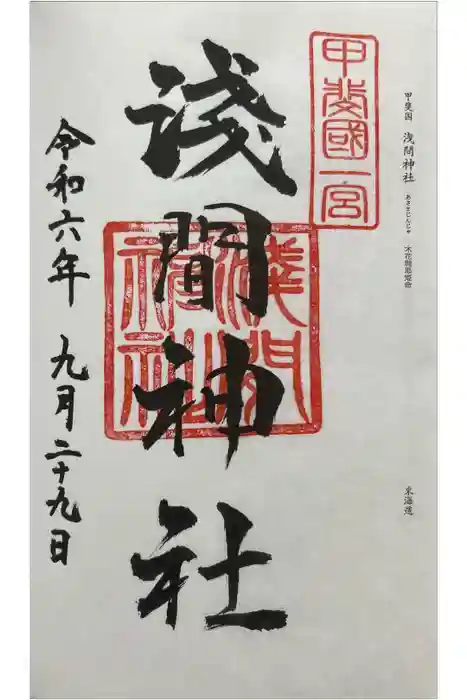 甲斐国 浅間神社 あさまじんじゃ 木花開耶姫命
東海道
甲斐國一宮
淺間神社
淺間神社
令和六年 九月二十九日